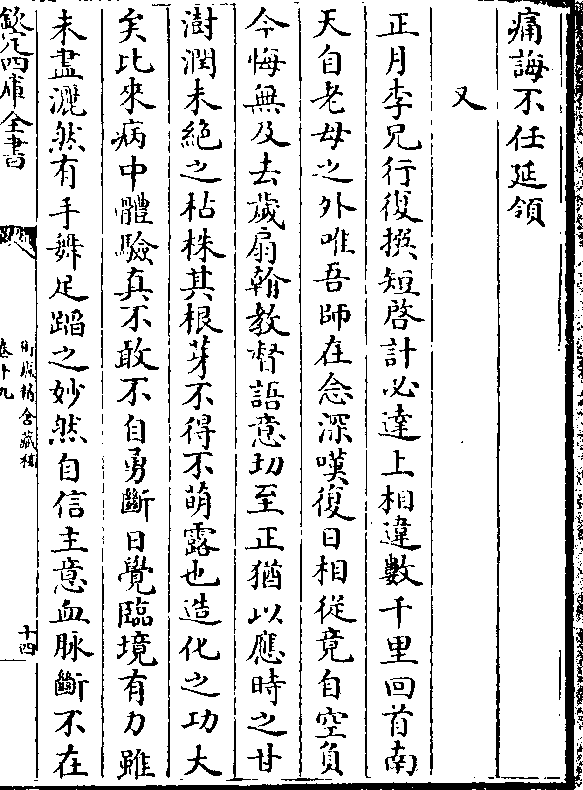 痛誨不任延領
又
正月李兄行復撰短啓計必達上相違數千里回首南
天自老母之外唯吾師在念深嘆復日相從竟自空負
今悔無及去歲扇翰教督語意切至正猶以應時之甘
澍潤未絶之枯株其根芽不得不萌露也造化之功大
矣比來病中體驗真不敢不自勇斷日覺臨境有力雖
未盡灑然有手舞足蹈之妙然自信主意血脉斷不在
欽定四庫全書
衡廬精舍藏稿
卷十九
十四